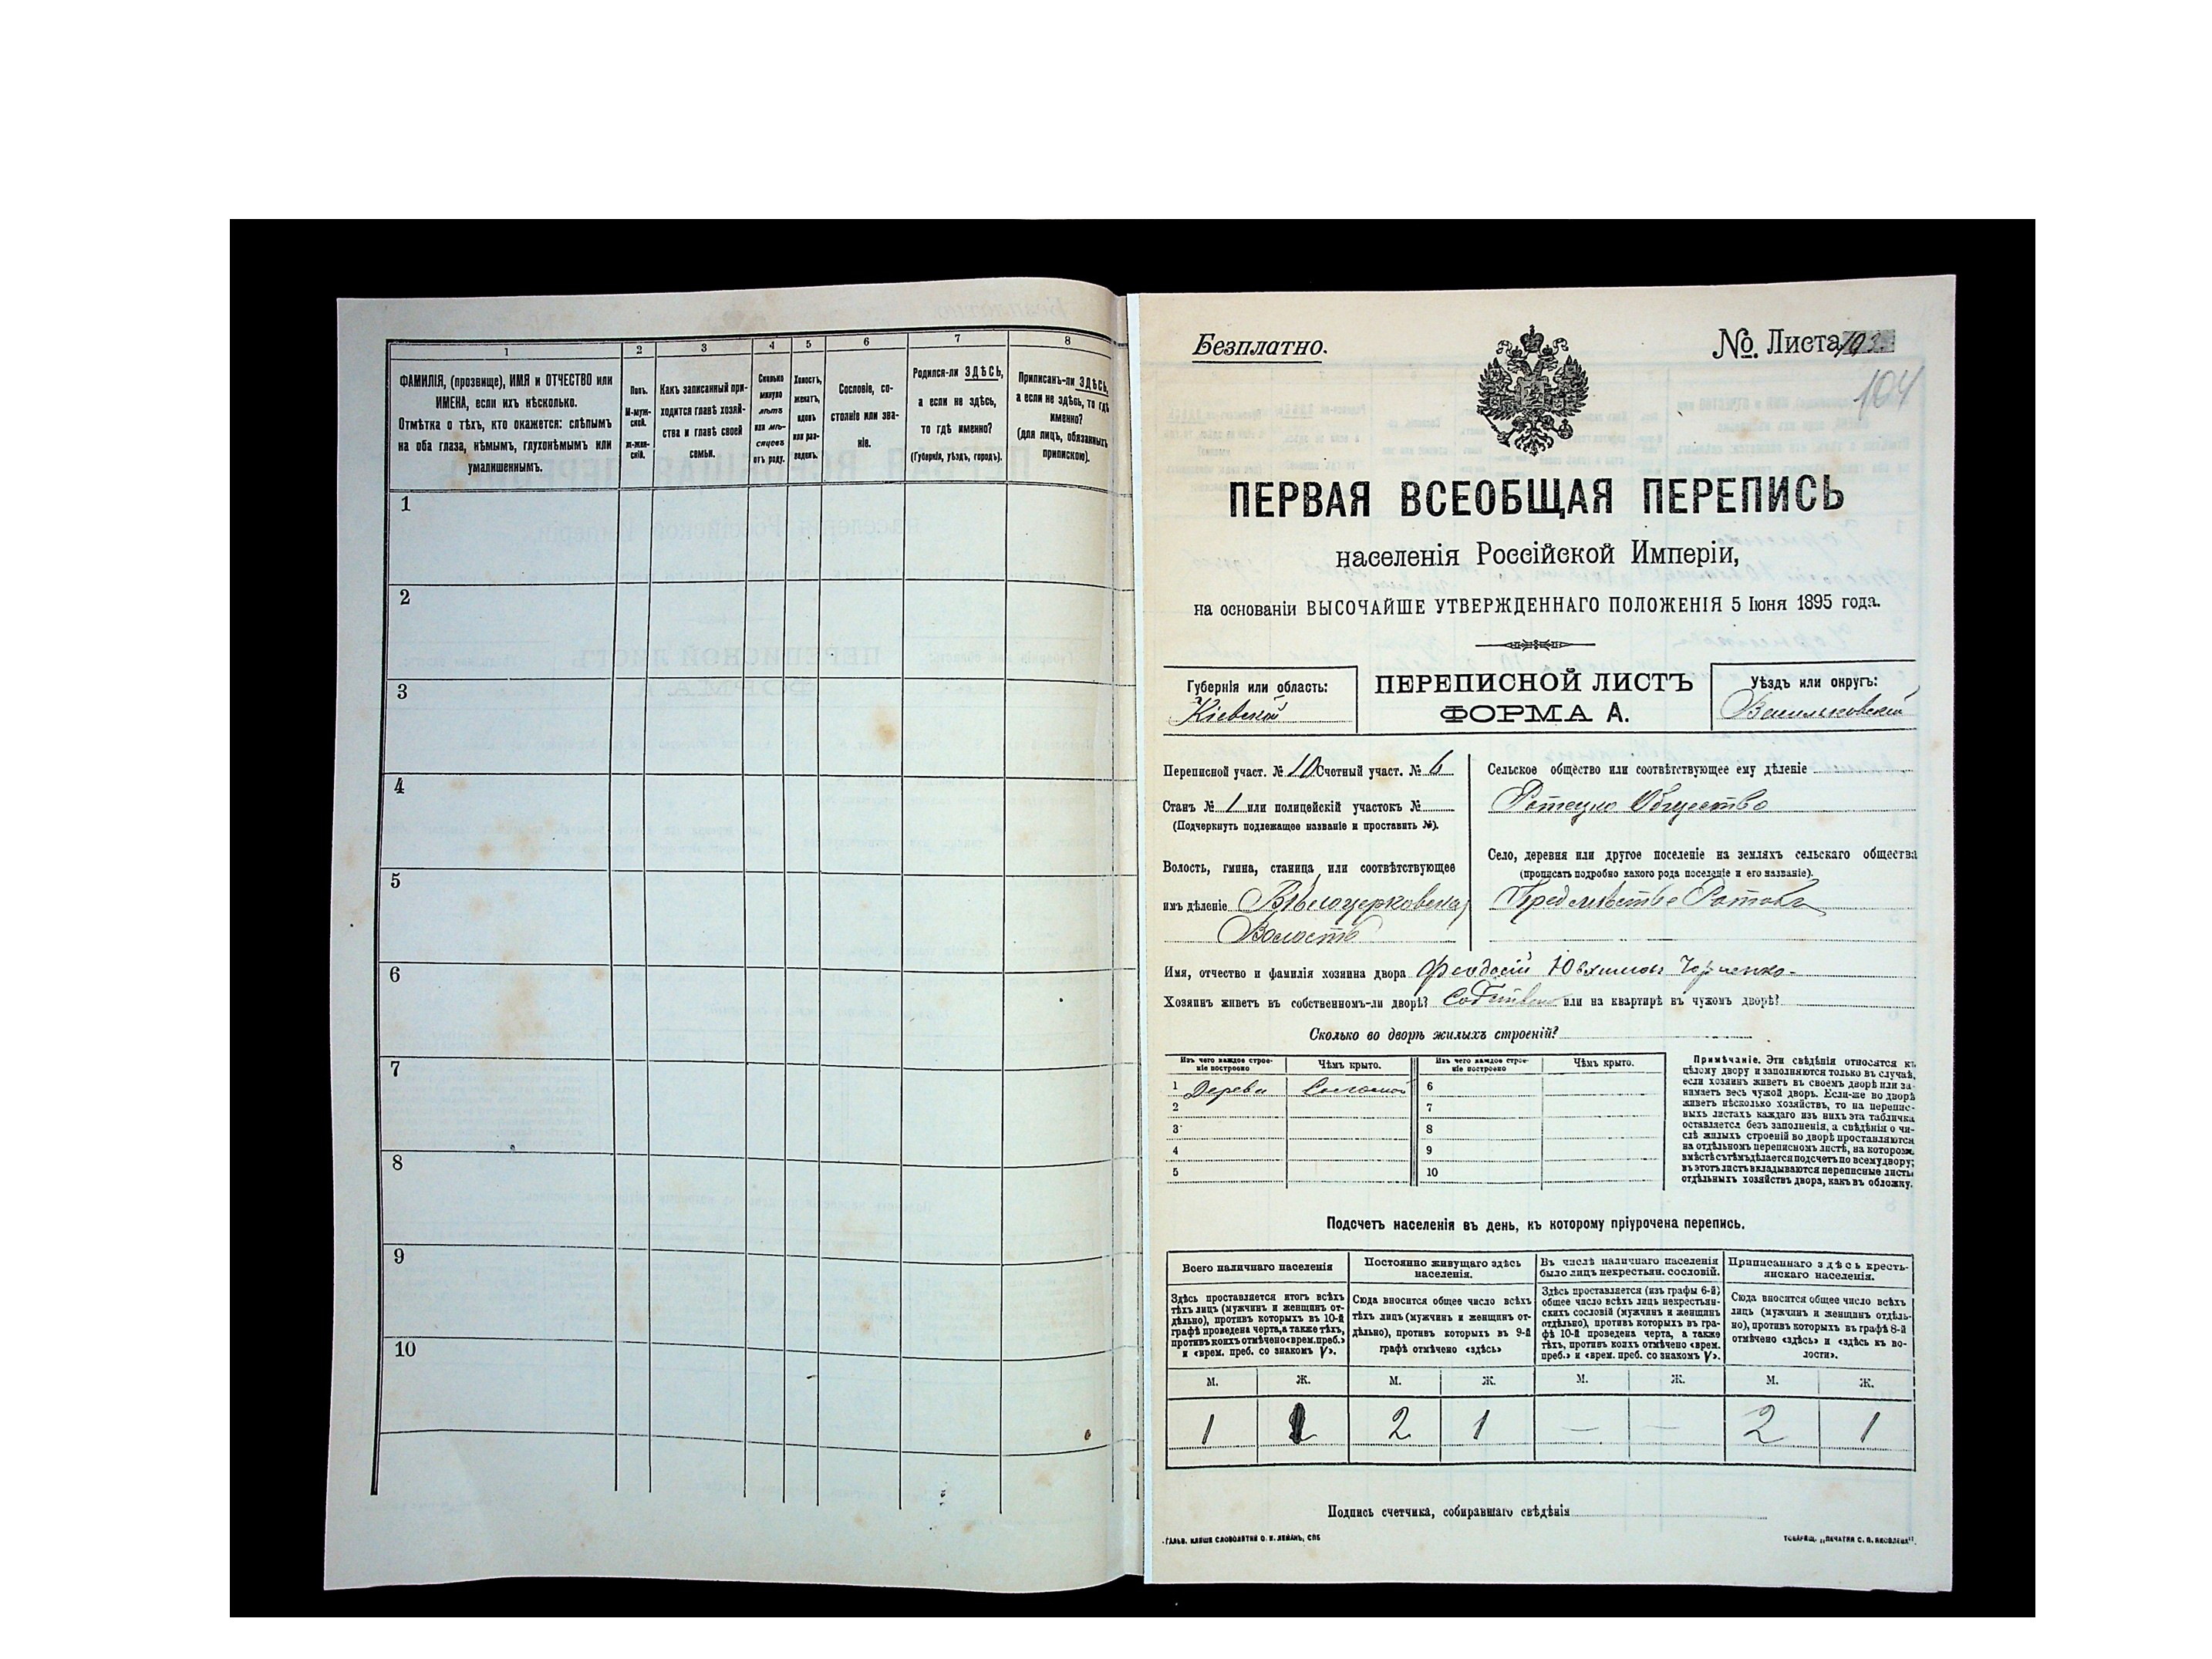 1 2 3 4 5 6 7 8
ФАМИЛІЯ, (прозвище), ИМЯ и ОТЧЕСТВО или
ИМЕНА, если ихъ нѣсколько.
Отмѣтка о тѣхъ, кто окажется: слѣпымъ
на оба глаза, нѣмымъ, глухонѣмымъ или
умалишеннымъ.
Полъ.
М-муж-
ской.
ж-жен-
скій.
Какъ записанный при-
ходится главѣ хозяй-
ства и главѣ своей
семьи.
Сколько
минуло
лѣтъ
или мѣ-
сяцевъ
отъ роду.
Холостъ,
женатъ,
вдовъ
или раз-
веденъ.
Сословіе, со-
стояніе или зва-
ніе.
Родился-ли ЗДѢСЬ,
а если не здѣсь,
то гдѣ именно?
(Губернія, уѣздъ, городъ).
Приписанъ-ли ЗДѢСЬ,
а если не здѣсь, то гдѣ
именно?
(для лицъ, обязанныхъ
припискою).
1
2
3
4
5
6
7
8
9
10
Безплатно.
№ Листа 193
104
ПЕРВАЯ ВСЕОБЩАЯ ПЕРЕПИСЬ
населенія Россійской Имперіи,
на основаніи ВЫСОЧАЙШЕ УТВЕРЖДЕННАГО ПОЛОЖЕНІЯ 5 Іюня 1895 года.
Губернія или область:
Кіевской
ПЕРЕПИСНОЙ ЛИСТЪ
ФОРМА А.
Уѣздъ или округъ:
Васильковскій
Переписной участ. № 10 Счетный участ. № 6
Станъ № 1 или полицейскій участокъ №
(Подчеркнуть подлежащее названіе и проставить №).
Волость, гмина, станица или соотвѣтствующее
имъ дѣленіе Бѣлоцерковская
Волость
Сельское общество или соотвѣтствующее ему дѣленіе
Общество
Село, деревня или другое поселеніе на земляхъ сельскаго общества
(прописать подробно какого рода поселеніе и его названіе).
Предмѣстье Ротокъ
Имя, отчество и фамилія хозяина двора Феодосій Юхимовъ
Хозяинъ живетъ въ собственномъ-ли дворѣ? или на квартирѣ въ чужомъ дворѣ?
Сколько во дворѣ жилыхъ строеній?
Изъ чего каждое строе-
ніе построено
Чѣмъ крыто.
Изъ чего каждое строе-
ніе построено
Чѣмъ крыто.
1 Дерева Соломой 6
2 7
3 8
4 9
5 10
Примѣчаніе. Эти свѣдѣнія относятся къ
цѣлому двору и заполняются только въ случаѣ,
если хозяинъ живетъ въ своемъ дворѣ или за-
нимаетъ весь чужой дворъ. Если-же во дворѣ
живетъ нѣсколько хозяйствъ, то на перепис-
ныхъ листахъ каждаго изъ нихъ эта табличка
оставляется безъ заполненія, а свѣдѣнія о чи-
слѣ жилыхъ строеній во дворѣ проставляются
на отдѣльномъ переписномъ листѣ, на которомъ
вмѣстѣ съ тѣмъ дѣлается подсчетъ по всему двору;
въ этотъ листъ вкладываются переписные листы
отдѣльныхъ хозяйствъ двора, какъ въ обложку.
Подсчетъ населенія въ день, къ которому пріурочена перепись.
Всего наличнаго населенія
Здѣсь проставляется итогъ всѣхъ
тѣхъ лицъ (мужчинъ и женщинъ от-
дѣльно), противъ которыхъ въ 10-й
графѣ проведена черта, а также тѣхъ,
противъ коихъ отмѣчено «врем. преб.»
и «врем. преб. со знакомъ V».
Постоянно живущаго здѣсь
населенія.
Сюда вносится общее число всѣхъ
тѣхъ лицъ (мужчинъ и женщинъ от-
дѣльно), противъ которыхъ въ 9-й
графѣ отмѣчено «здѣсь»
Въ числѣ наличнаго населенія
было лицъ некрестьян. сословій.
Здѣсь проставляется (изъ графы 6-й)
общее число всѣхъ лицъ некрестьян-
скихъ сословій (мужчинъ и женщинъ
отдѣльно), противъ которыхъ въ гра-
фѣ 10-й проведена черта, а также
тѣхъ, противъ коихъ отмѣчено «врем.
преб.» и «врем. преб. со знакомъ V».
Приписаннаго здѣсь кресть-
янскаго населенія.
Сюда вносится общее число всѣхъ
лицъ (мужчинъ и женщинъ отдѣль-
но), противъ которыхъ въ графѣ 8-й
отмѣчено «здѣсь» и «здѣсь къ во-
лости».
М. Ж. М. Ж. М. Ж. М. Ж.
1 2 2 1 — — 2 1
Подпись счетчика, собиравшаго свѣдѣнія
ГАЛЬВ. КЛИШЕ СЛОВОЛИТНИ О. И. ЛЕМАНЪ, СПБ
ТОВАРИЩ. „ПЕЧАТНЯ С. П. ЯКОВЛЕВА".